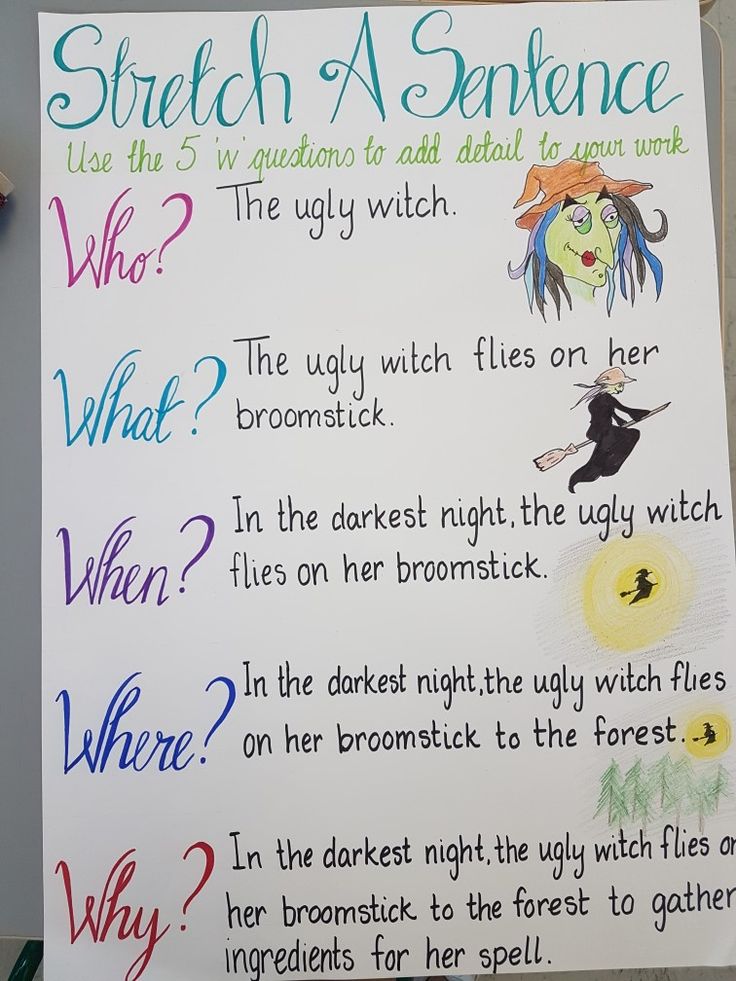 Stretch A Sentence
Use the 5 'W' questions to add detail to your work
Who? The ugly witch.
What? The ugly witch flies on her
broomstick.
When? In the darkest night, the ugly witch
flies on her broomstick.
Where? In the darkest night, the ugly witch flies
on her broomstick to the forest.
Why? In the darkest night, the ugly witch flies on
her broomstick to the forest to gather
ingredients for her spell.